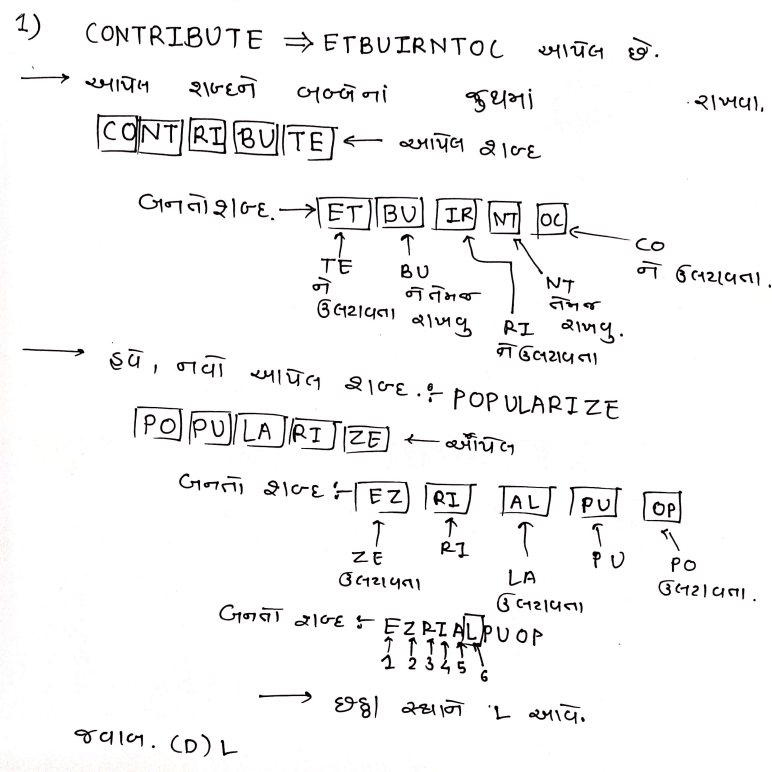 1) CONTRIBUTE ⇒ ETBUIRNTOC આપેલ છે.
→ આપેલ શબ્દને બબ્બેનાં જુથમાં રાખવા.
CO NT RI BU TE ← આપેલ શબ્દ
બનતો શબ્દ. → ET BU IR NT OC ← CO ને ઉલટાવતા.
TE ને ઉલટાવતા
BU ને તેમજ રાખવુ
RI ને ઉલટાવતા
NT તેમજ રાખવુ.
→ હવે, નવો આપેલ શબ્દ :- POPULARIZE
PO PU LA RI ZE ← આપેલ
બનતો શબ્દ :- EZ RI AL PU OP
ZE ઉલટાવતા
RI
LA ઉલટાવતા
PU
PO ઉલટાવતા.
બનતો શબ્દ :- EZRIALPUOP
1 2 3 4 5 6
→ છઠ્ઠા સ્થાને 'L આવે.
જવાબ. (D) L